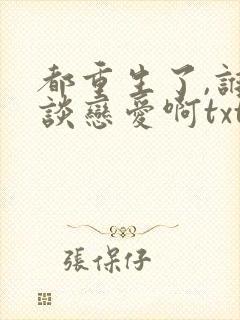 都重生了,誰
談戀愛啊txt
張保仔